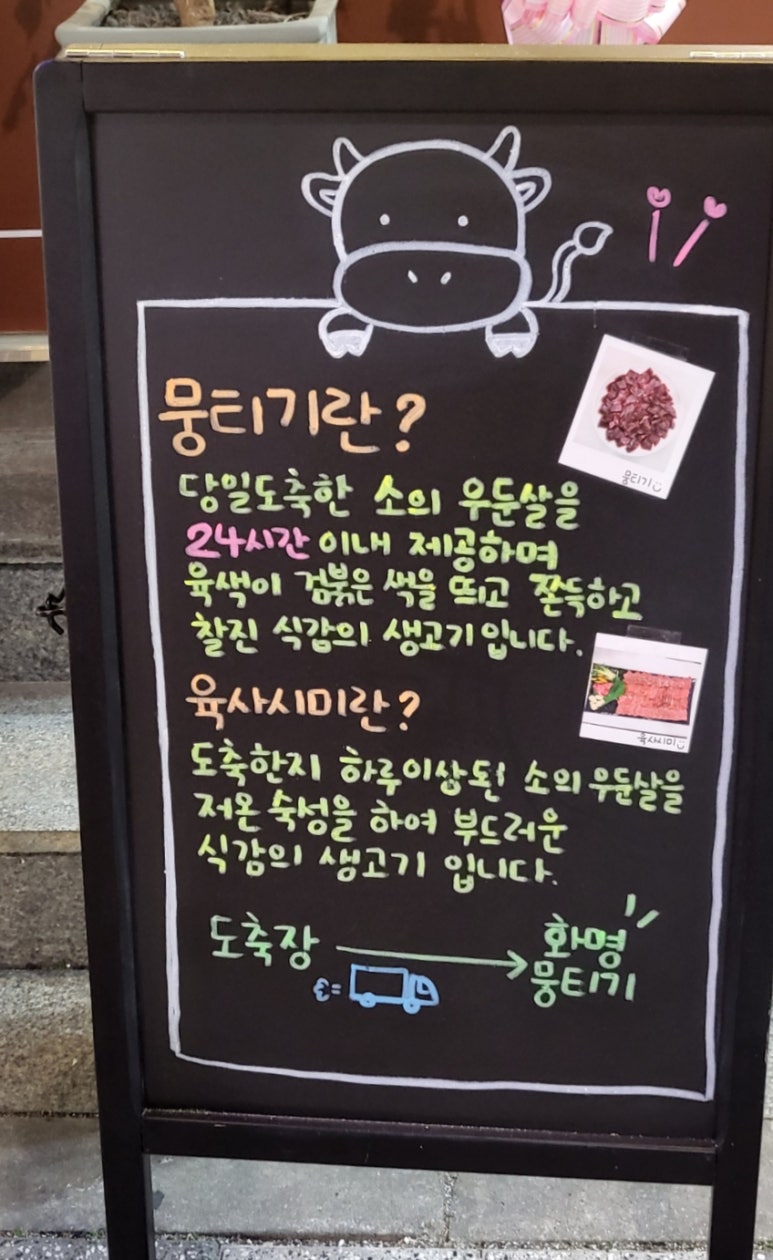 뭉티기란?
뭉티기
당일도축한 소의 우둔살을
24시간 이내 제공하며
육색이 검붉은 색을 띄고 쫀득하고
찰진 식감의 생고기입니다.
육사시미란?
육사시미
도축한지 하루이상된 소의 우둔살을
저온 숙성을 하여 부드러운
식감의 생고기 입니다.
도축장
화명
뭉티기